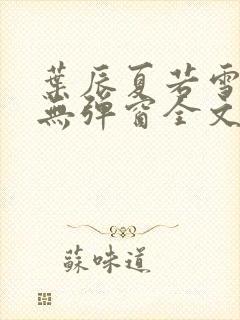 葉辰夏若雪
無彈窗全文
蘇味道